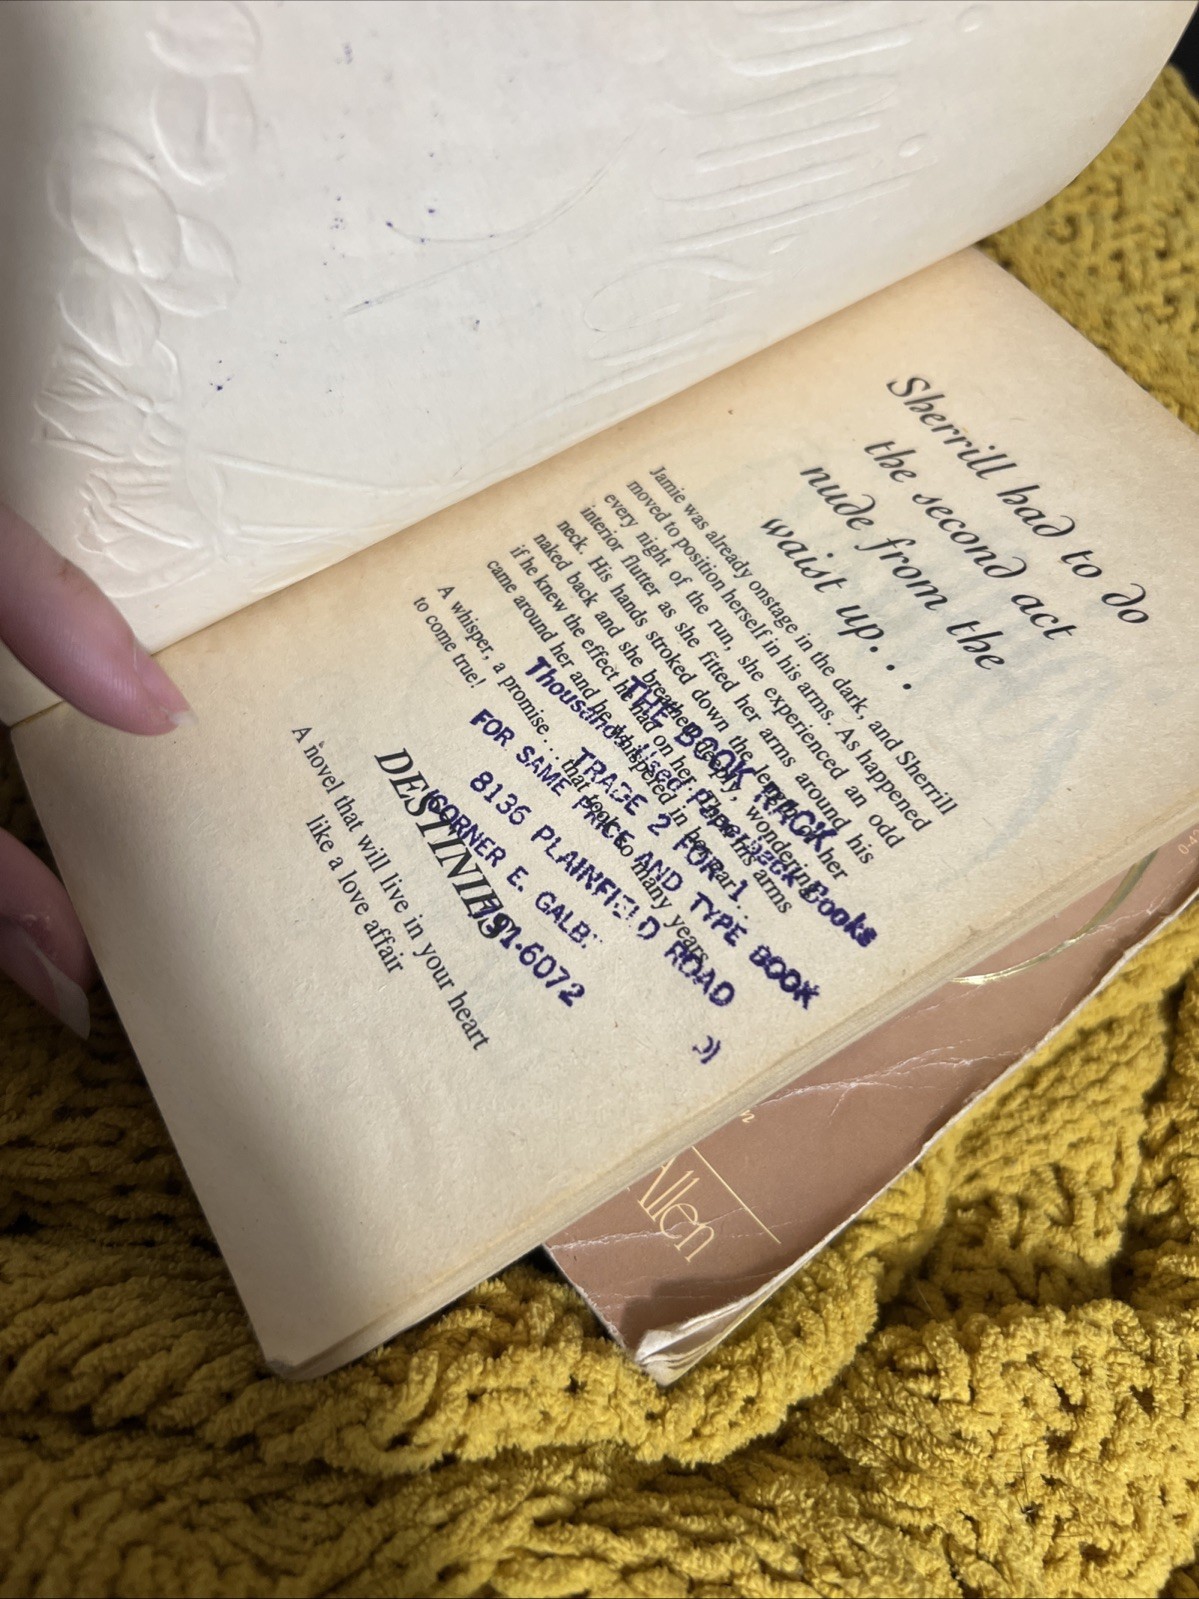 Sherrill had to do
the second act
nude from the
waist up. . .
Jamie was already onstage in the dark, and Sherrill
moved to position herself in his arms. As happened
every night of the run, she experienced an odd
interior flutter as she fitted her arms around his
neck. His hands stroked down the length of her
naked back and she breathed deeply, wondering
if he knew the effect he had on her. Then his arms
came around her and he whispered in her ear. .
A whisper, a promise . . . that took so many years
to come true!
DESTINIES
A novel that will live in your heart
like a love affair
THE BOOK RACK
Thousands Used Paperback Books
TRADE 2 FOR 1
FOR SAME PRICE AND TYPE BOOK
8136 PLAINFIELD ROAD
CORNER E. GALB
791-6072
Allen